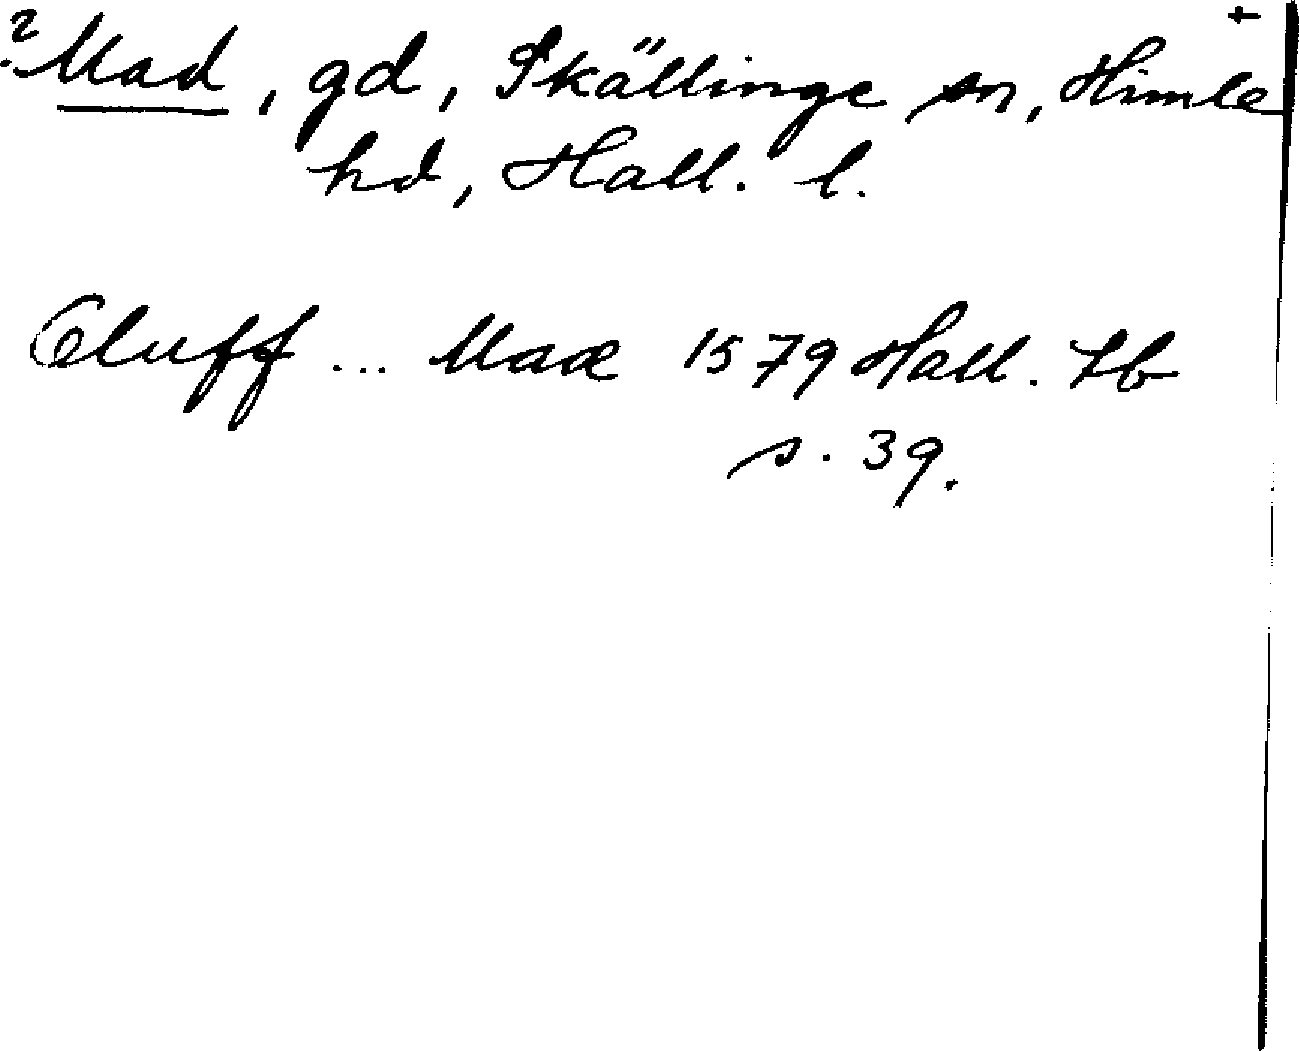 ? Mad, gd, Skällinge sn, Himle
hd, Hall. l.
Oluff ... Maae 1579 Hall. Lb
s. 39.